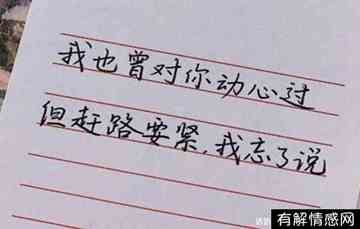 我也曾对你动心过
但赶路要紧，我忘了说
有解情感网